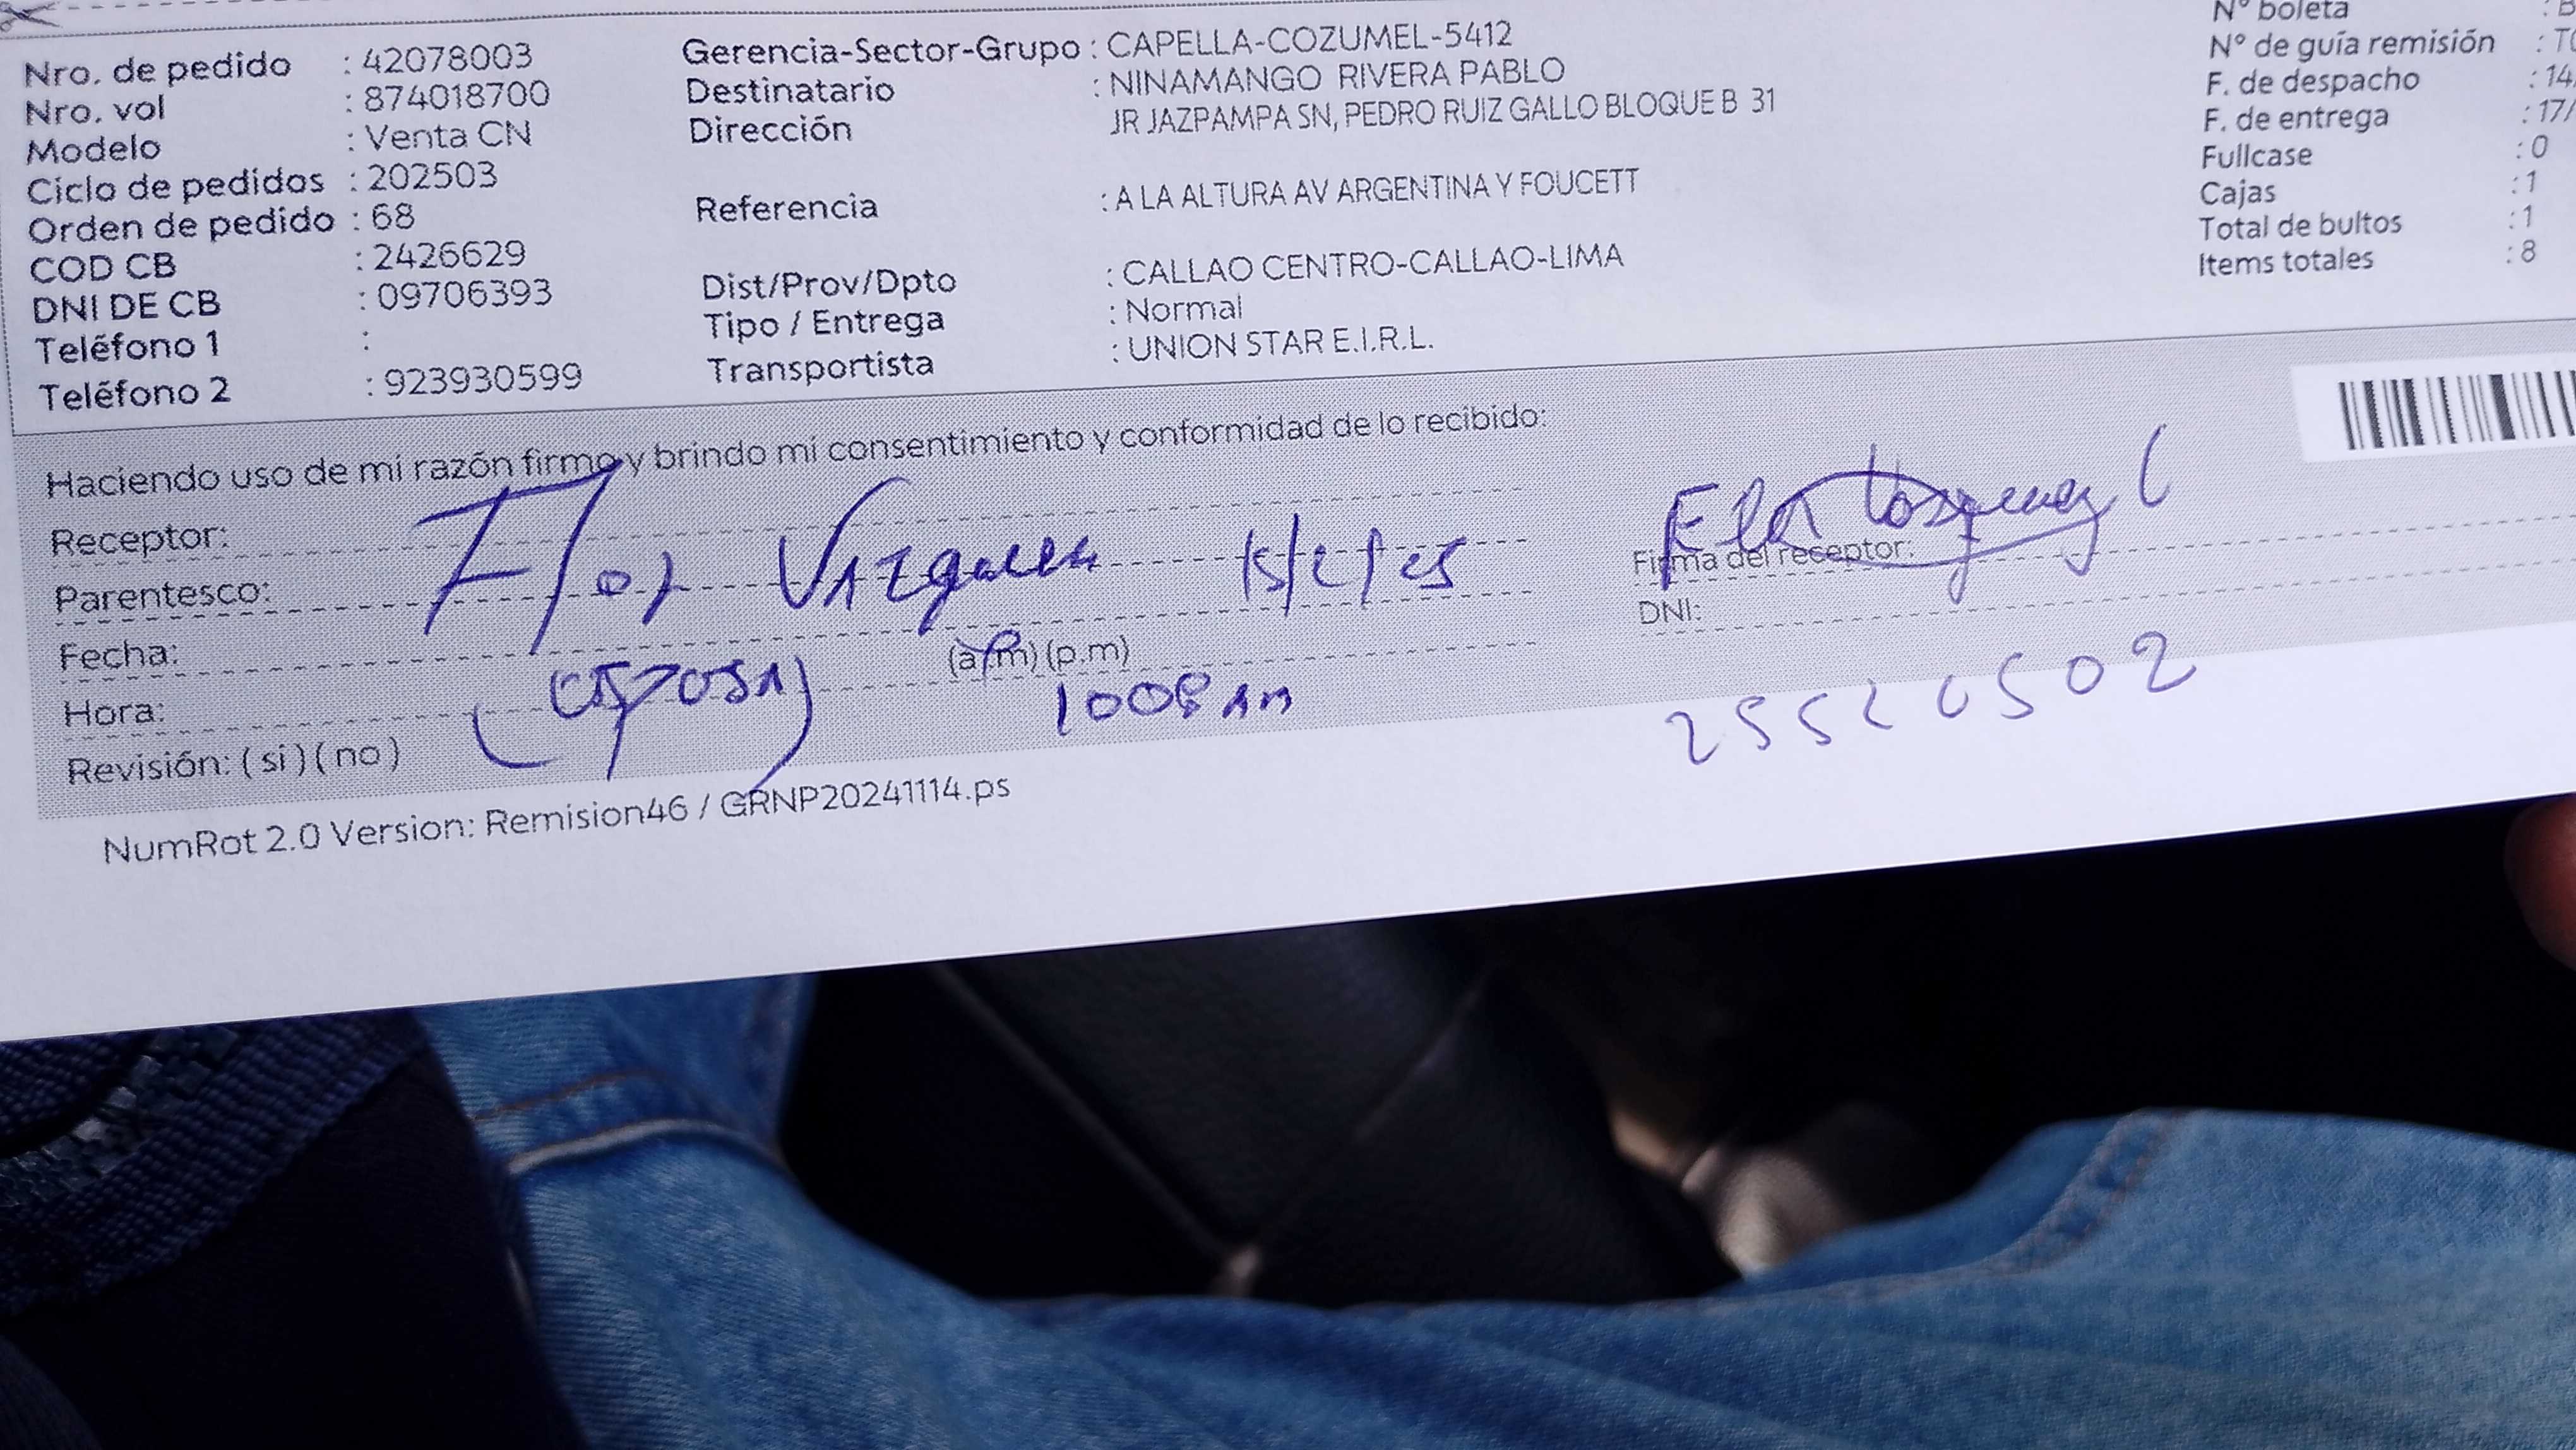 Nro. de pedido : 42078003
Nro. vol : 874018700
Modelo : Venta CN
Ciclo de pedidos : 202503
Orden de pedido : 68
COD CB : 2426629
DNI DE CB : 09706393
Teléfono 1 :
Teléfono 2 : 923930599
Gerencia-Sector-Grupo : CAPELLA-COZUMEL-5412
Destinatario : NINAMANGO RIVERA PABLO
Dirección JR JAZPAMPA SN, PEDRO RUIZ GALLO BLOQUE B 31
Referencia : A LA ALTURA AV ARGENTINA Y FOUCETT
Dist/Prov/Dpto : CALLAO CENTRO-CALLAO-LIMA
Tipo / Entrega : Normal
Transportista : UNION STAR E.I.R.L.
N° boleta : B
N° de guía remisión :
F. de despacho : 14
F. de entrega : 17/
Fullcase : 0
Cajas : 1
Total de bultos : 1
Items totales : 8
Haciendo uso de mi razón firmo y brindo mi consentimiento y conformidad de lo recibido:
Receptor:
Parentesco: Flor
Fecha: (a.m) (p.m)
Hora: (esposa)
Revisión: ( si ) ( no )
Firma del receptor:
DNI:
NumRot 2.0 Version: Remision46 / GRNP20241114.ps